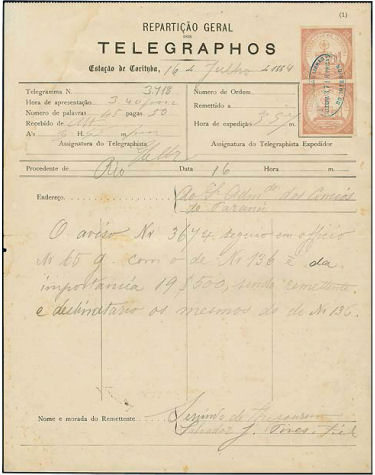 (1)
REPARTIÇÃO GERAL
DOS
TELEGRAPHOS
Estação de Corityba, 16 de Julho de 1884
Telegramma N. 3718
Hora de apresentação 3.40
Numero de palavras 45 pagas 50
Recebido de
A's H. m.
Assignatura do Telegraphista
Numero de Ordem
Remettido a
Hora de expedição
Assignatura do Telegraphista Expedidor
Procedente de Rio Data 16 Hora m.
Endereço, Ao Sr. Adm. dos Correios
do Paraná
O aviso Nr 3674 seguio em officio
N 65 9 com o de Nr 136 é da
importancia 19$500, sendo remettente
e destinatario os mesmos do de Nr 136.
Nome e morada do Remettente
Salvador J. Pires